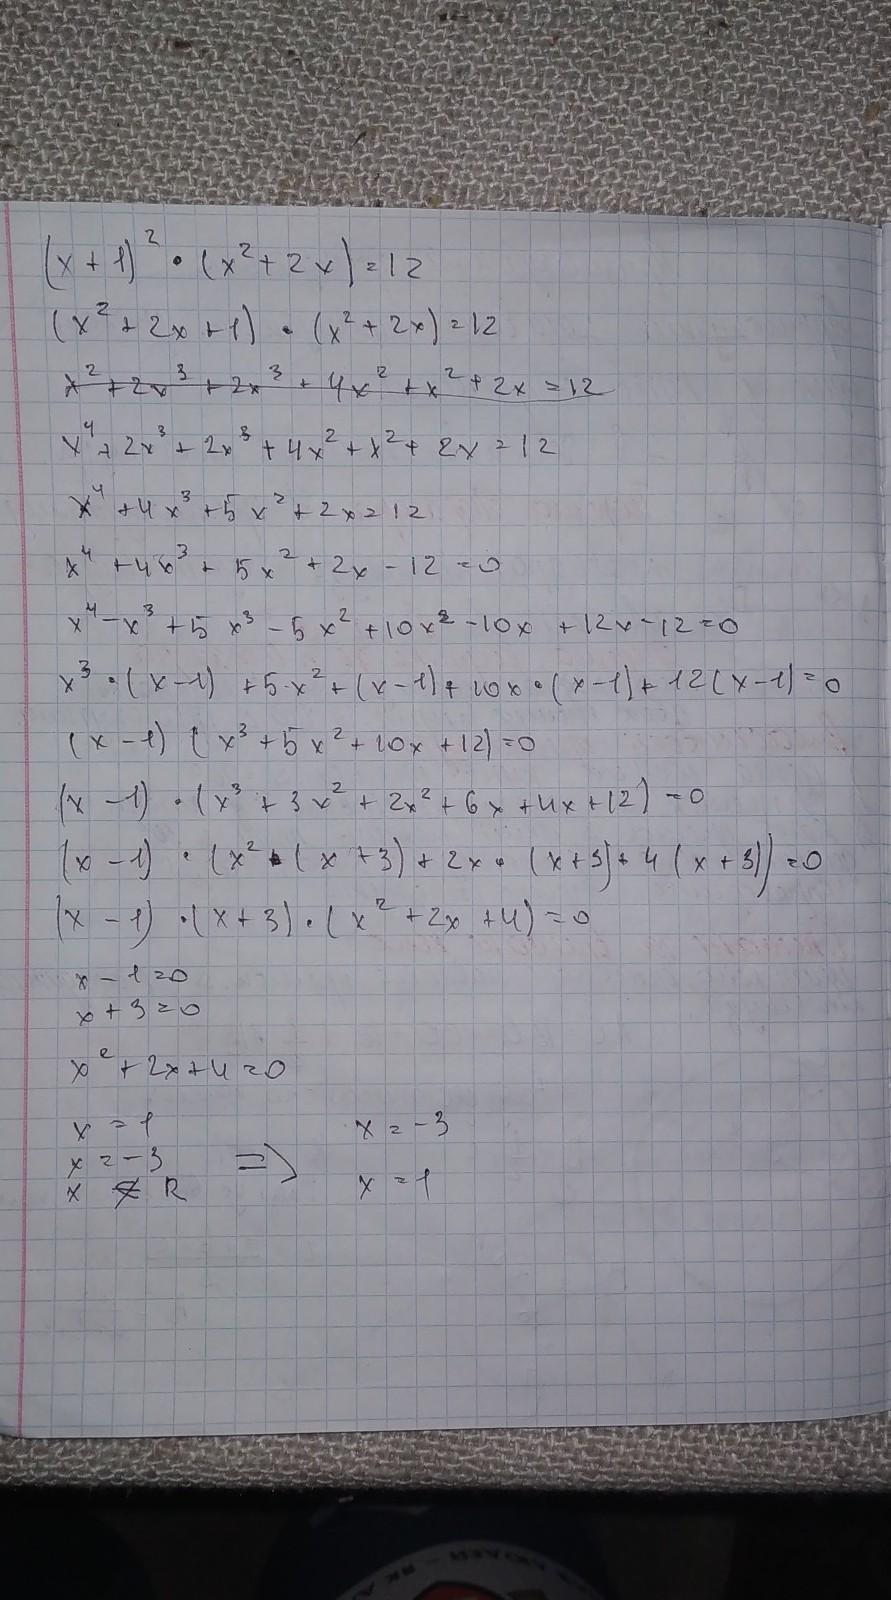 (x+1)² • (x²+2x)=12
(x²+2x+1) • (x²+2x)=12
x²+2x³+2x³+4x²+x²+2x=12
x⁴+2x³+2x³+4x²+x²+2x=12
x⁴+4x³+5x²+2x=12
x⁴+4x³+5x²+2x-12=0
x⁴-x³+5x³-5x²+10x²-10x+12x-12=0
x³•(x-1)+5·x²+(x-1)+10x•(x-1)+12(x-1)=0
(x-1)(x³+5x²+10x+12)=0
(x-1)•(x³+3x²+2x²+6x+4x+12)=0
(x-1)•(x²•(x+3)+2x•(x+3)+4(x+3))=0
(x-1)•(x+3)•(x²+2x+4)=0
x-1=0
x+3=0
x²+2x+4=0
x=1 x=-3
x=-3 ⇒
x∉R x=1